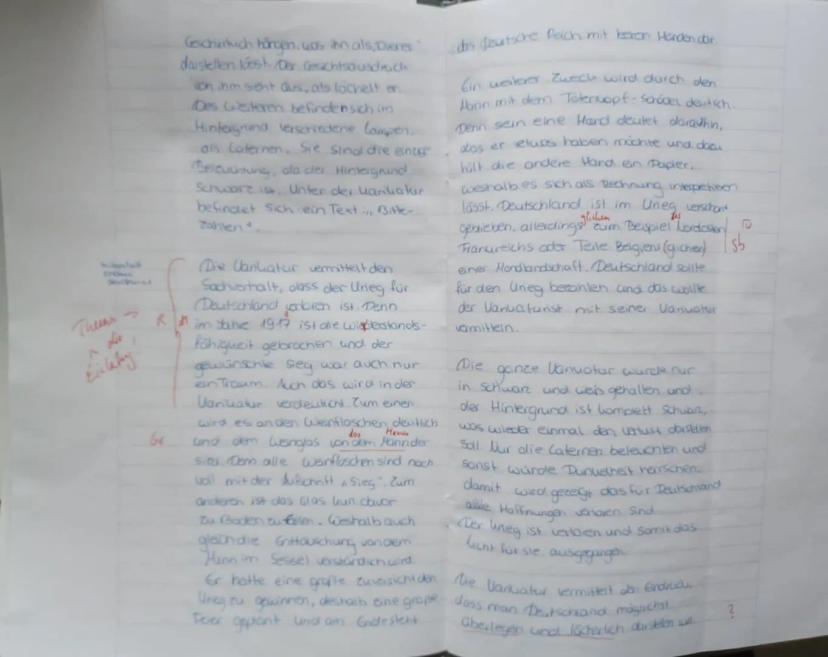 Geschirrtuch hängen, was ihn als "Dieres"
darstellen lässt. Der Gesichtsausdruck
von ihm sieht aus, als lächelt er.
Des Weiteren befinden sich im
Hintergrund verschiedene Lampen,
als Laternen. Sie sind die einzige
Beleuchtung, da der Hintergrund
schwarz ist. Unter der Karikatur
befindet sich ein Text: "Bitte
zahlen".
Die Karikatur vermittelt den
Sachverhalt, dass der Krieg für
Deutschland verloren ist. Denn
im Jahre 1917 ist die Widerstands-
fähigkeit gebrochen und der
gewünschte Sieg war auch nur
ein Traum. Auch das wird in der
Karikatur verdeutlicht. Zum einen
wird es an den Weinflaschen deutlich
und dem Weinglas von dem Mann der
sitzt. Denn alle Weinflaschen sind noch
voll mit der Aufschrift "Sieg". Zum
anderen ist das Glas kurz davor
zu Boden zu fallen. Weshalb auch
gleich die Enttäuschung von dem
Mann im Sessel verständlich wird.
Er hatte eine große Zuversicht den
Krieg zu gewinnen, deshalb eine große
Feier geplant und am Ende steht
Thema →
R
Einleitung!
Gr
das Deutsche Reich mit leeren Händen dar.
Ein weiterer Zweck wird durch den
Mann mit dem Totenkopf-Schädel deutlich.
Denn sein eine Hand deutet daraufhin,
das er etwas haben möchte und dazu
hält die andere Hand ein Papier,
weshalb es sich als Rechnung interpretieren
lässt. Deutschland ist im Krieg verschont
geblieben, allerdings glichen zum Beispiel das Nordosten
Frankreichs oder Teile Belgiens (glichen)
einer Mondlandschaft. Deutschland sollte
für den Krieg bezahlen und das wollte
der Karikaturist mit seiner Karikatur
vermitteln.
Sb
Die ganze Karikatur wurde nur
in schwarz und weiß gehalten und
der Hintergrund ist komplett schwarz,
was wieder einmal den Verlust darstellen
soll. Nur die Laternen beleuchten und
sonst würde Dunkelheit herrschen.
damit wird gezeigt das für Deutschland
alle Hoffnungen verloren sind.
Der Krieg ist verloren und somit das
Licht für sie ausgegangen.
Die Karikatur vermittelt den Eindruck,
dass man Deutschland möglichst
überlegen und lächerlich darstellen will.
?